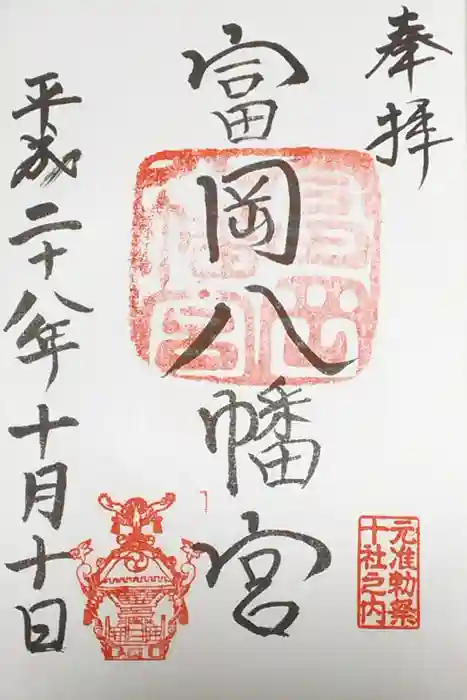 奉拝
富岡八幡宮
元准勅祭
十社之内
平成二十八年十月十日